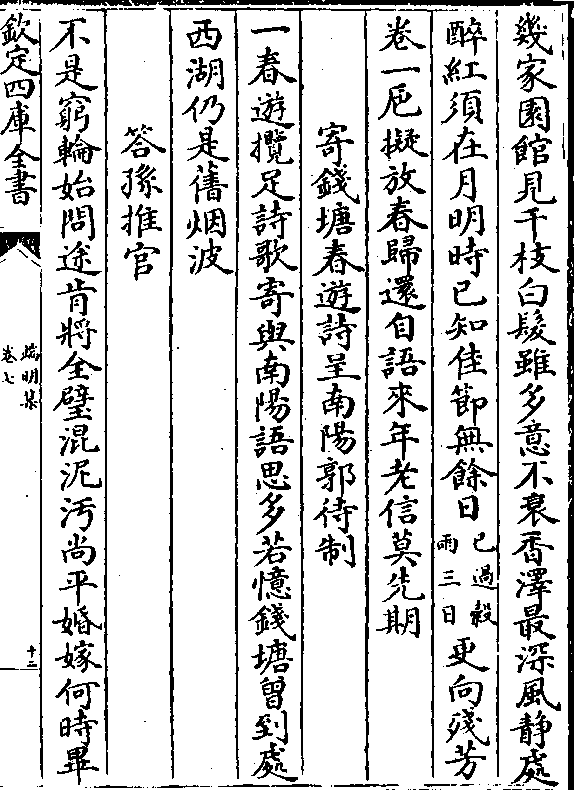 幾家園館見千枝白髮雖多意不衰香澤最深風靜處
醉紅須在月明時已知佳節無餘日已過穀雨三日更向殘芳
卷一巵擬放春歸還自語來年老信莫先期
寄錢塘春遊詩呈南陽郭待制
一春遊攬足詩歌寄與南陽語思多若憶錢塘曾到處
西湖仍是舊烟波
答孫推官
不是窮輪始問途肯將全璧混泥汚尚平婚嫁何時畢
欽定四庫全書
端明集
卷七
十二